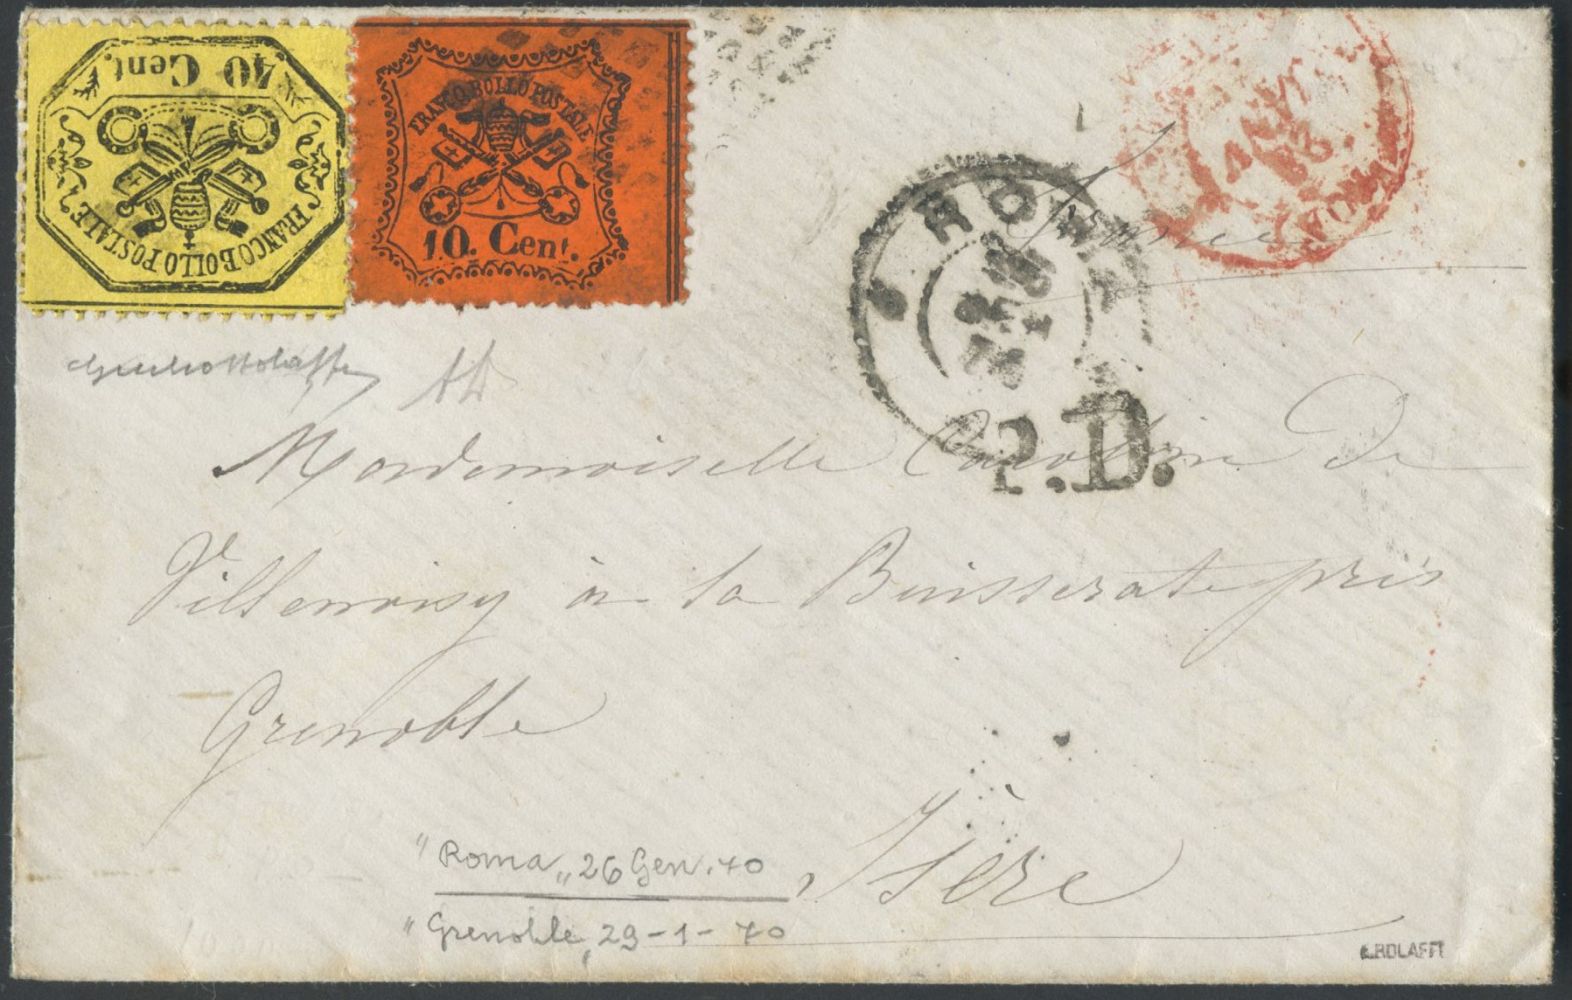 40 Cent.
FRANCO BOLLO POSTALE
FRANCO BOLLO POSTALE
10. Cent.
France
ROMA
P.D.
Mademoiselle Caroline De
Villenoisy à la Buisserate près
Grenoble
Isère
"Roma„ 26 Gen. 70
"Grenoble, 29-1-70
A.BOLAFFI